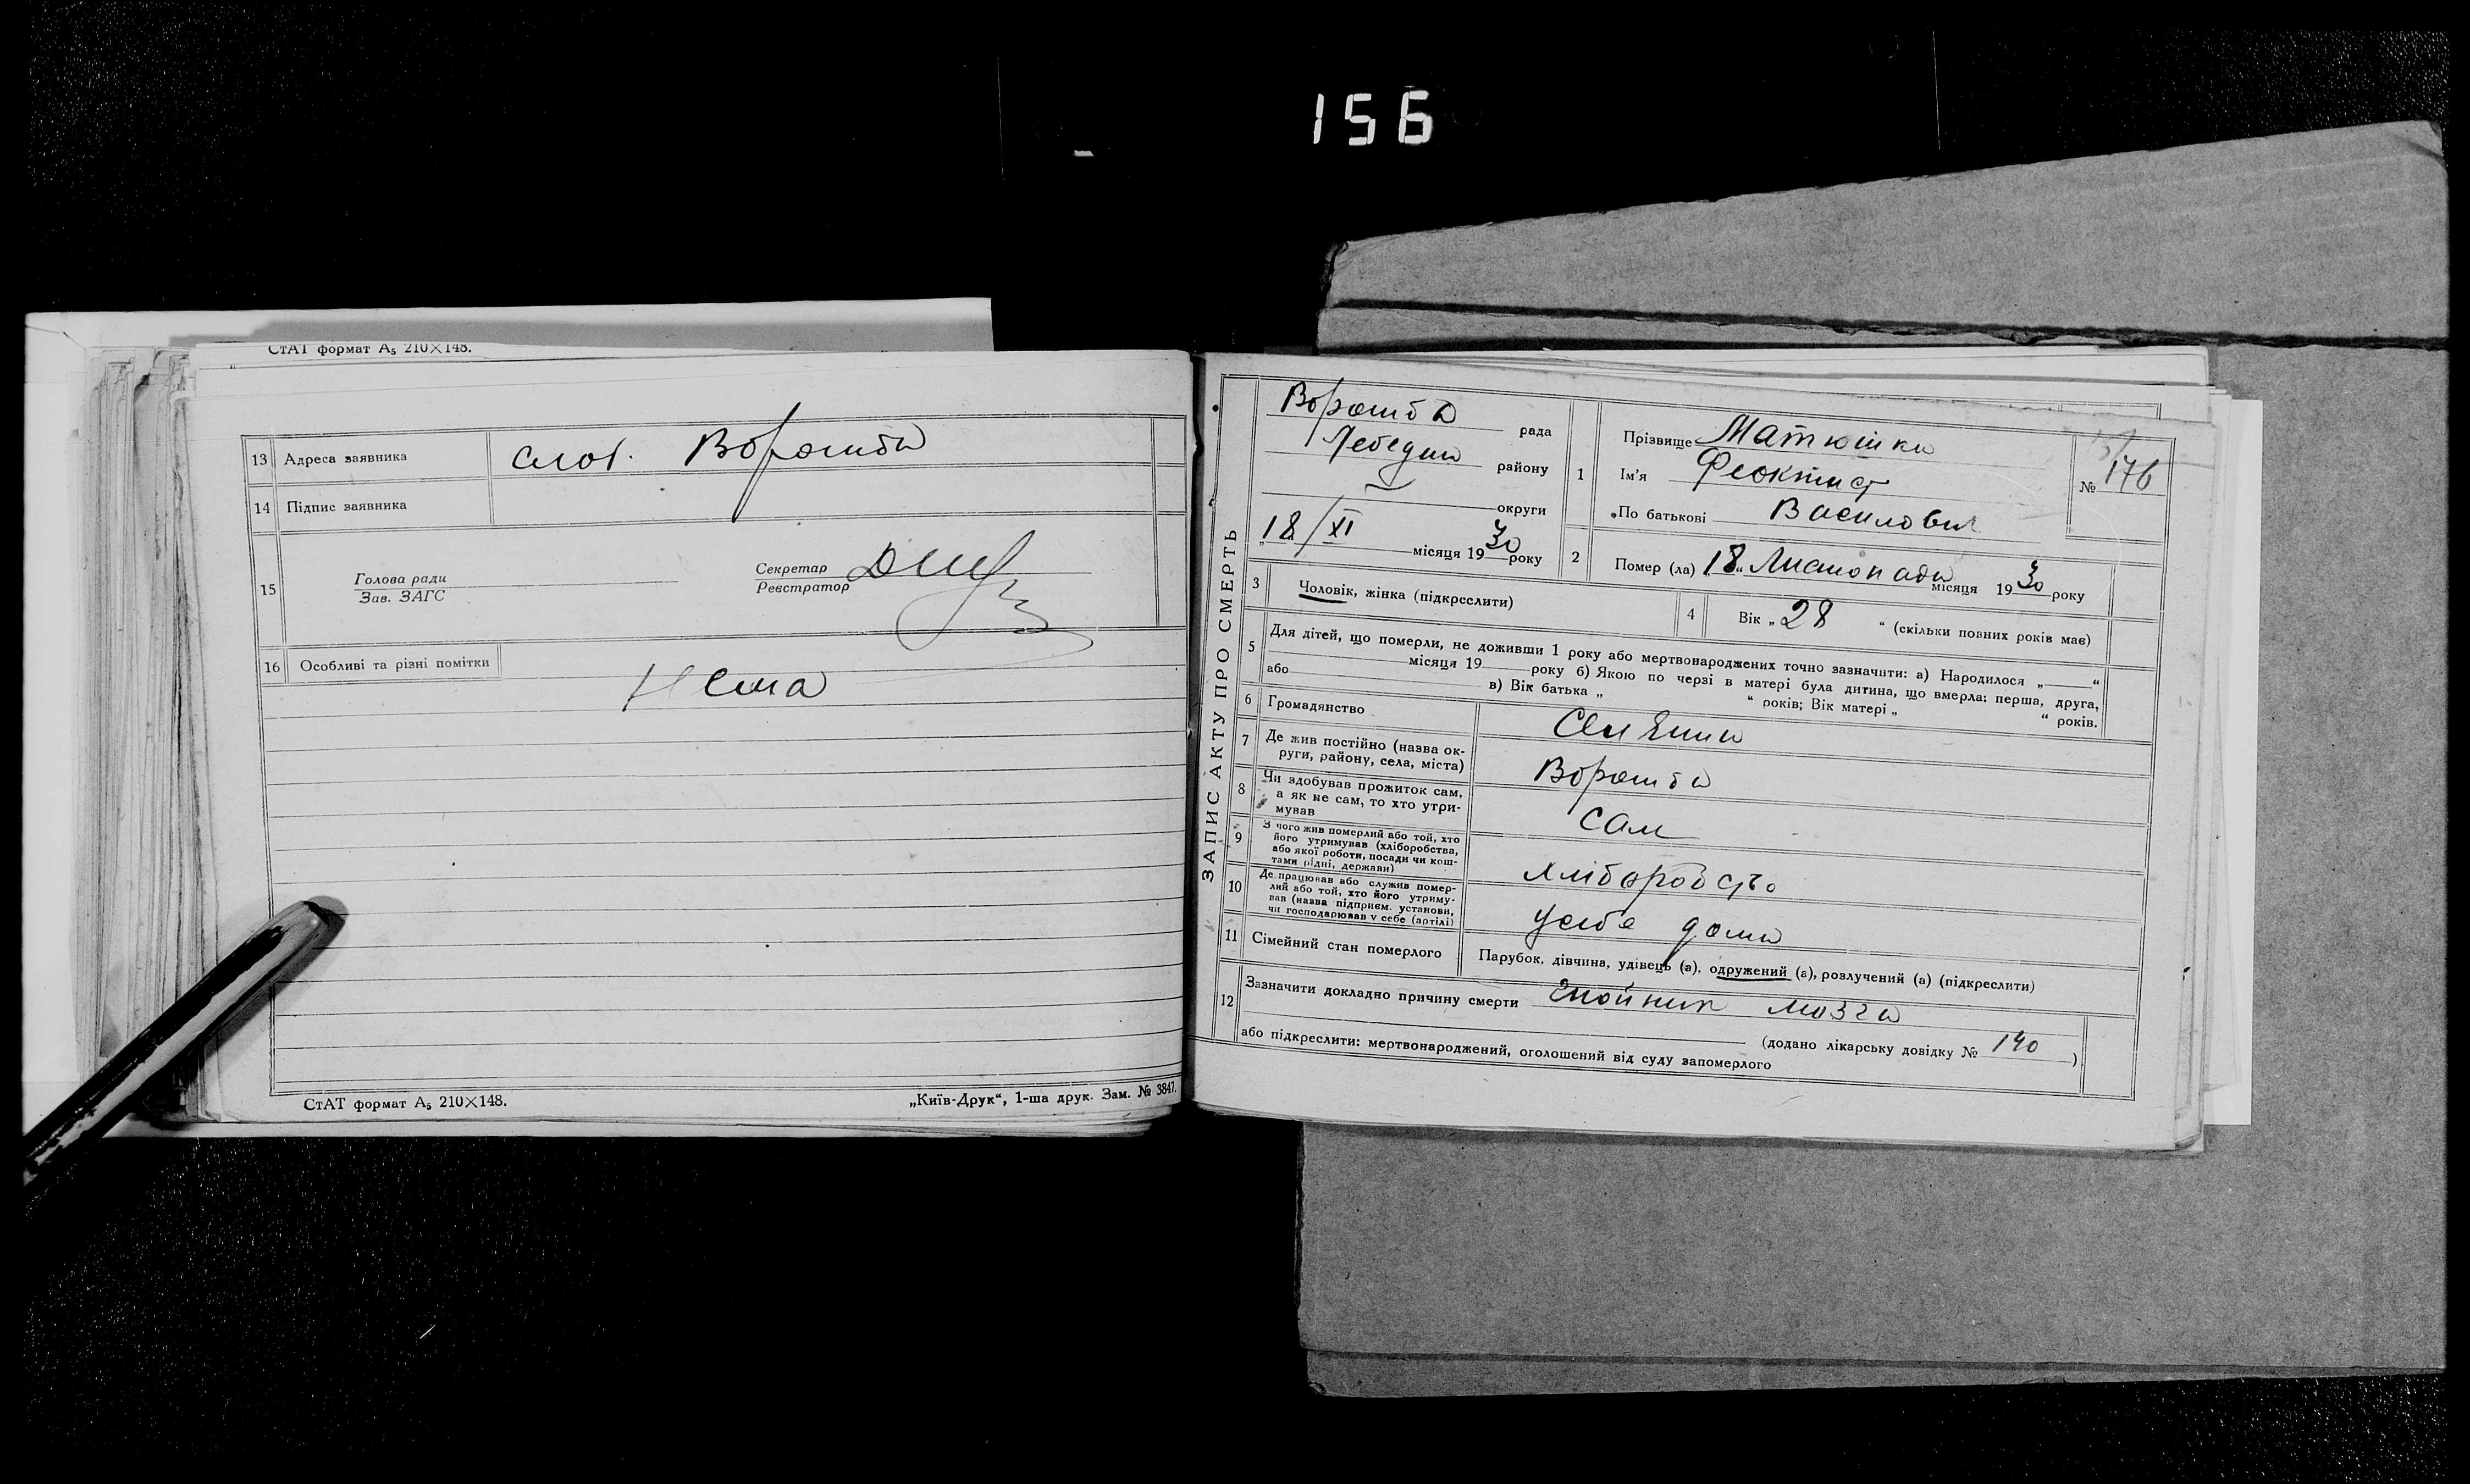 156
СтАТ формат А₅ 210×148.
13 Адреса заявника слоб. Ворожба
14 Підпис заявника
15 Голова ради
Зав. ЗАГС
Секретар
Реєстратор
16 Особливі та різні помітки
Нема
СтАТ формат А₅ 210×148.
„Київ-Друк“, 1-ша друк. Зам. № 3847.
ЗАПИС АКТУ ПРО СМЕРТЬ
Ворожба рада
Лебедин району
округи
„18/XI місяця 1930 року
1 Прізвище Матюшка
Ім'я Феоктист
По батькові Василович
№ 176
2 Помер (ла) „18“ Листопада місяця 1930 року
3 Чоловік, жінка (підкреслити)
4 Вік „28“ (скільки повних років має)
5 Для дітей, що померли, не доживши 1 року або мертвонароджених точно зазначити: а) Народилося „ “
місяця 19 року б) Якою по черзі в матері була дитина, що вмерла: перша, друга,
або в) Вік батька „ “ років; Вік матері „ “ років.
6 Громадянство Селянин
7 Де жив постійно (назва ок-
руги, району, села, міста) Ворожба
8 Чи здобував прожиток сам,
а як не сам, то хто утри-
мував Сам
9 З чого жив померлий або той, хто
його утримував (хліборобства,
або якої роботи, посади чи кош-
тами рідні, держави) Хліборобство
10 Де працював або служив помер-
лий або той, хто його утриму-
вав (назва підприєм. установи,
чи господарював у себе (артілі) усебе дома
11 Сімейний стан померлого Парубок, дівчина, удівець (а), одружений (а), розлучений (а) (підкреслити)
12 Зазначити докладно причину смерти Гнойник мозга
(додано лікарську довідку № 140)
або підкреслити: мертвонароджений, оголошений від суду запомерлого